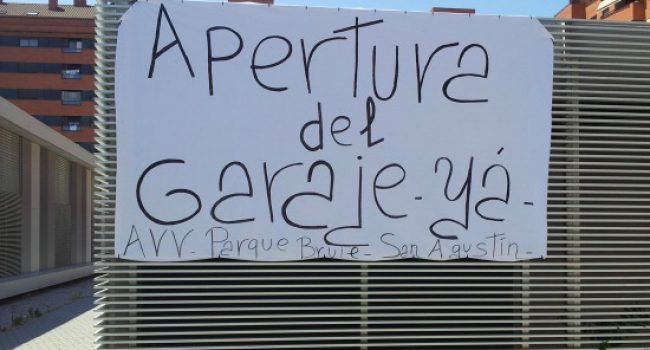 Apertura
del
Garaje - yá -
AVV - Parque Bruie - San Agustín -